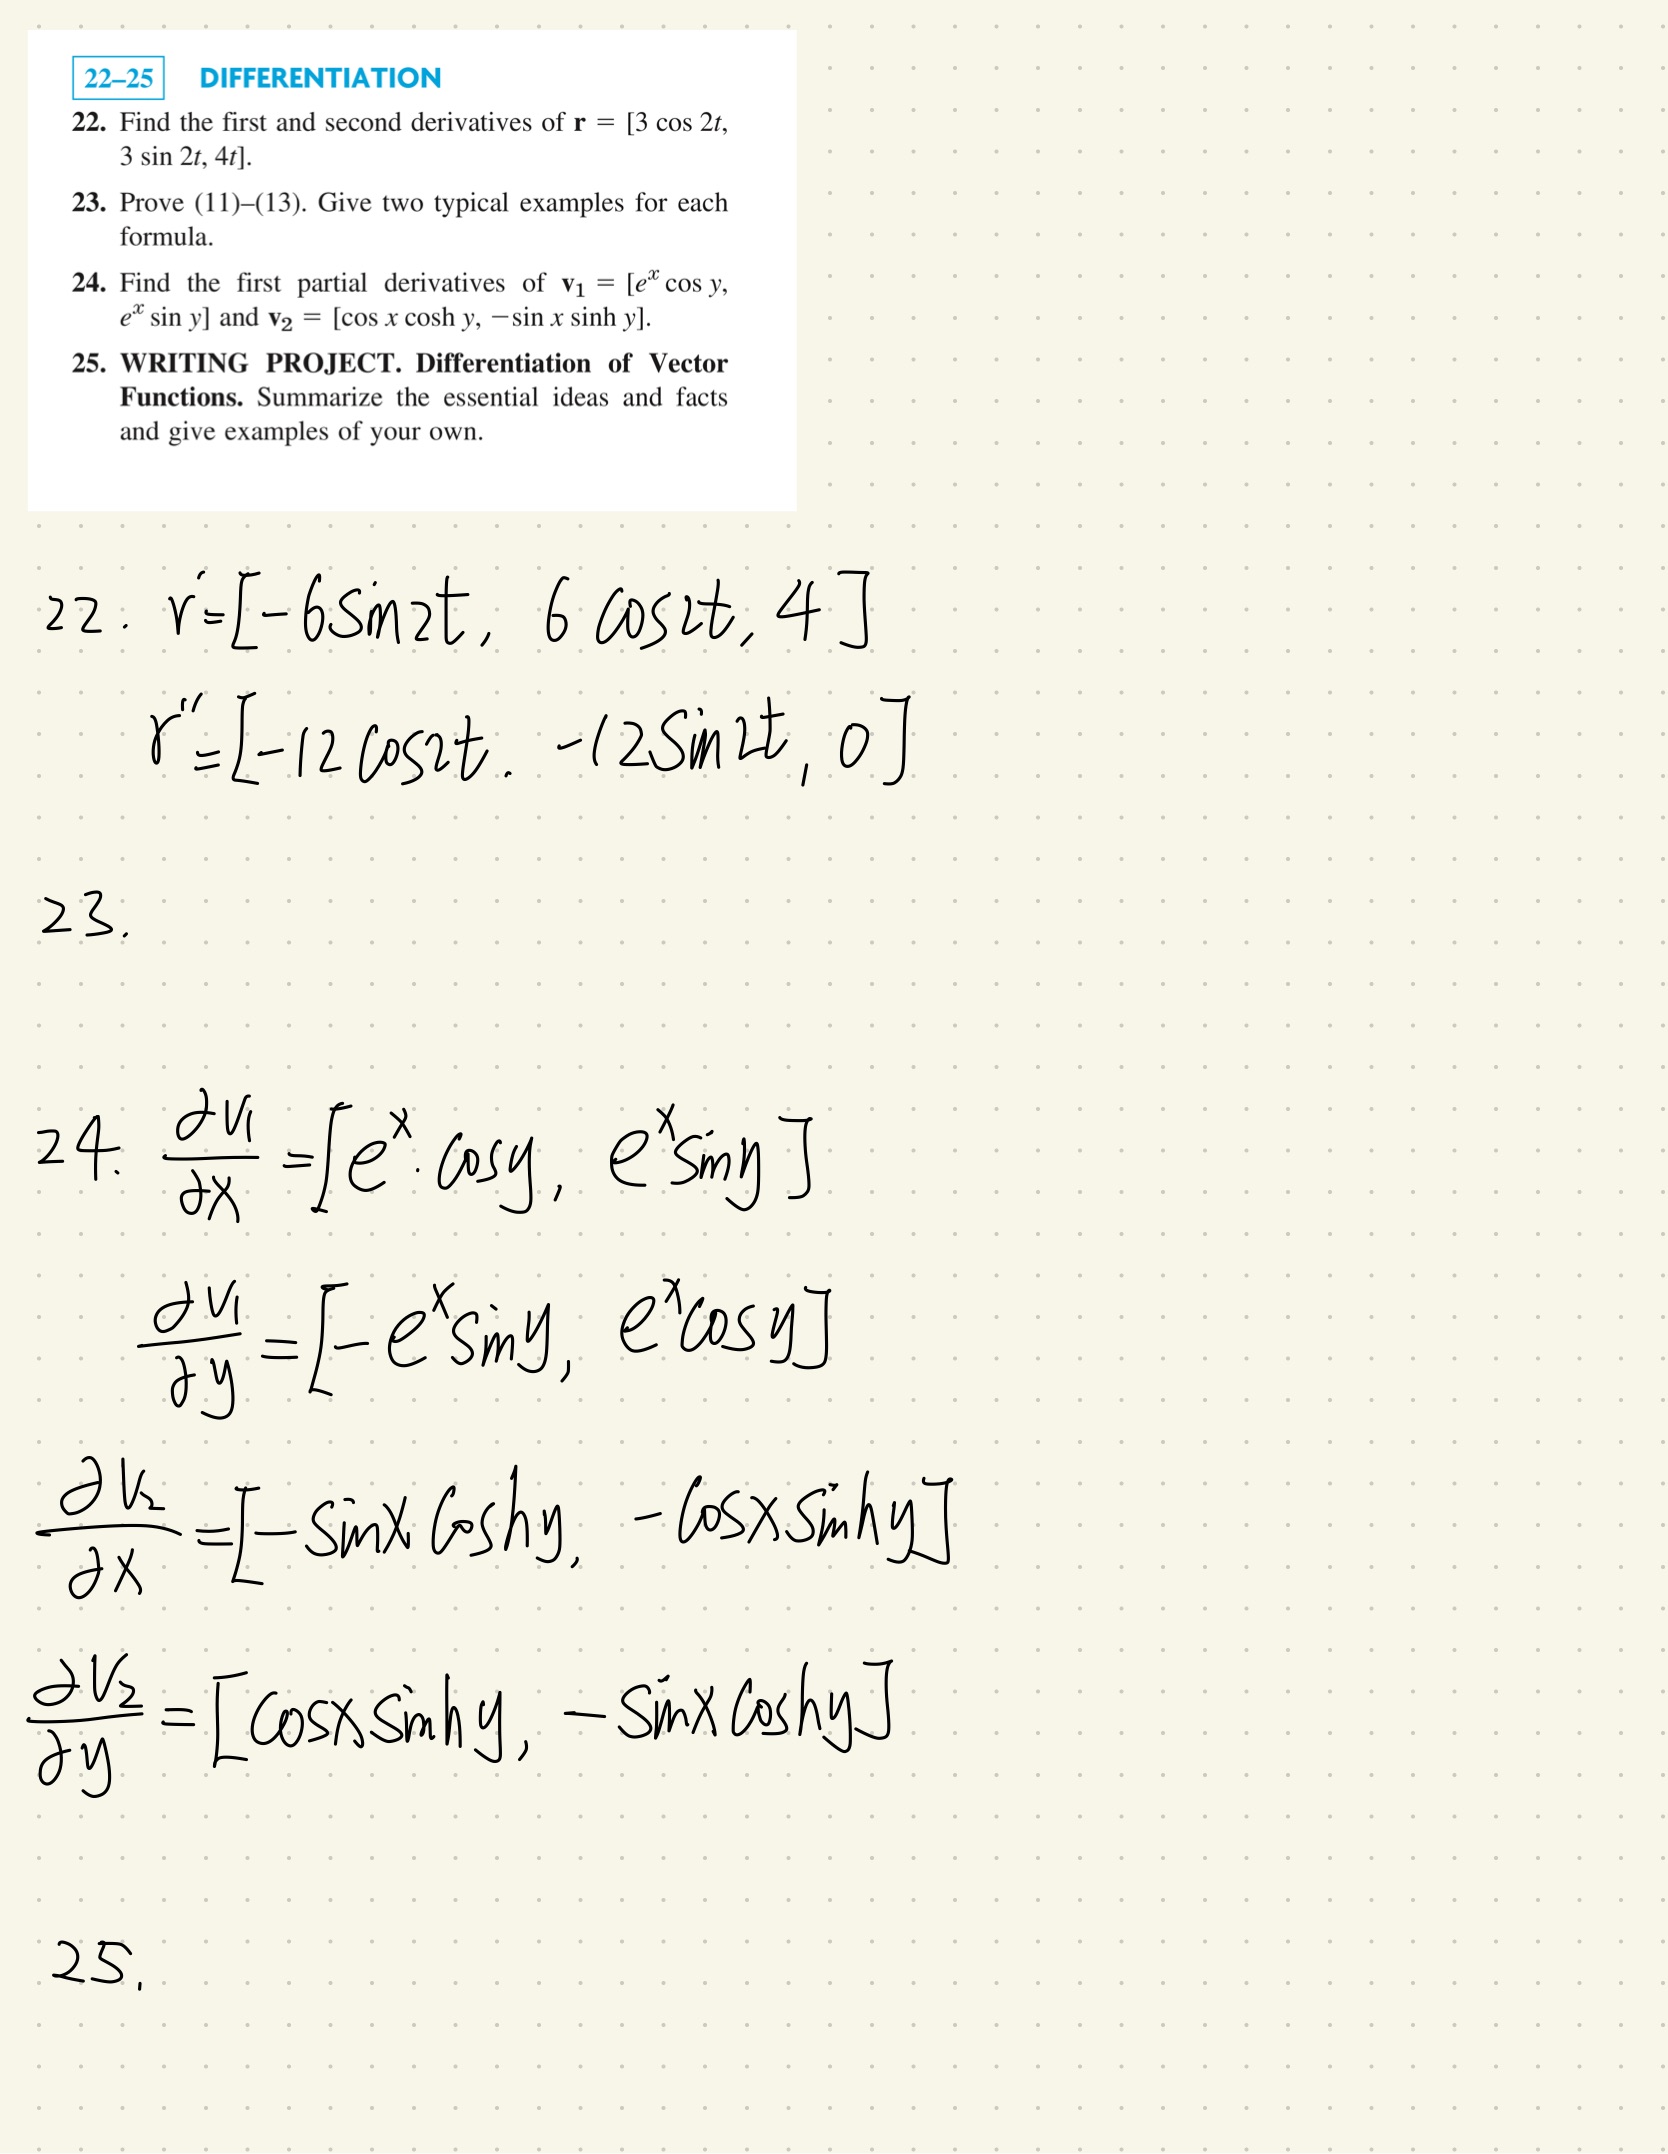 22–25 DIFFERENTIATION
22. Find the first and second derivatives of r = [3 cos 2t,
3 sin 2t, 4t].
23. Prove (11)–(13). Give two typical examples for each
formula.
24. Find the first partial derivatives of v₁ = [eˣ cos y,
eˣ sin y] and v₂ = [cos x cosh y, −sin x sinh y].
25. WRITING PROJECT. Differentiation of Vector
Functions. Summarize the essential ideas and facts
and give examples of your own.
22. r' = [-6 sin 2t, 6 cos 2t, 4]
r'' = [-12 cos 2t. -12 sin 2t, 0]
23.
24. ∂v₁/∂x = [eˣ · cos y, eˣ sin y]
∂v₁/∂y = [-eˣ sin y, eˣ cos y]
∂v₂/∂x = [-sin x cosh y, -cos x sinh y]
∂v₂/∂y = [cos x sinh y, -sin x cosh y]
25.